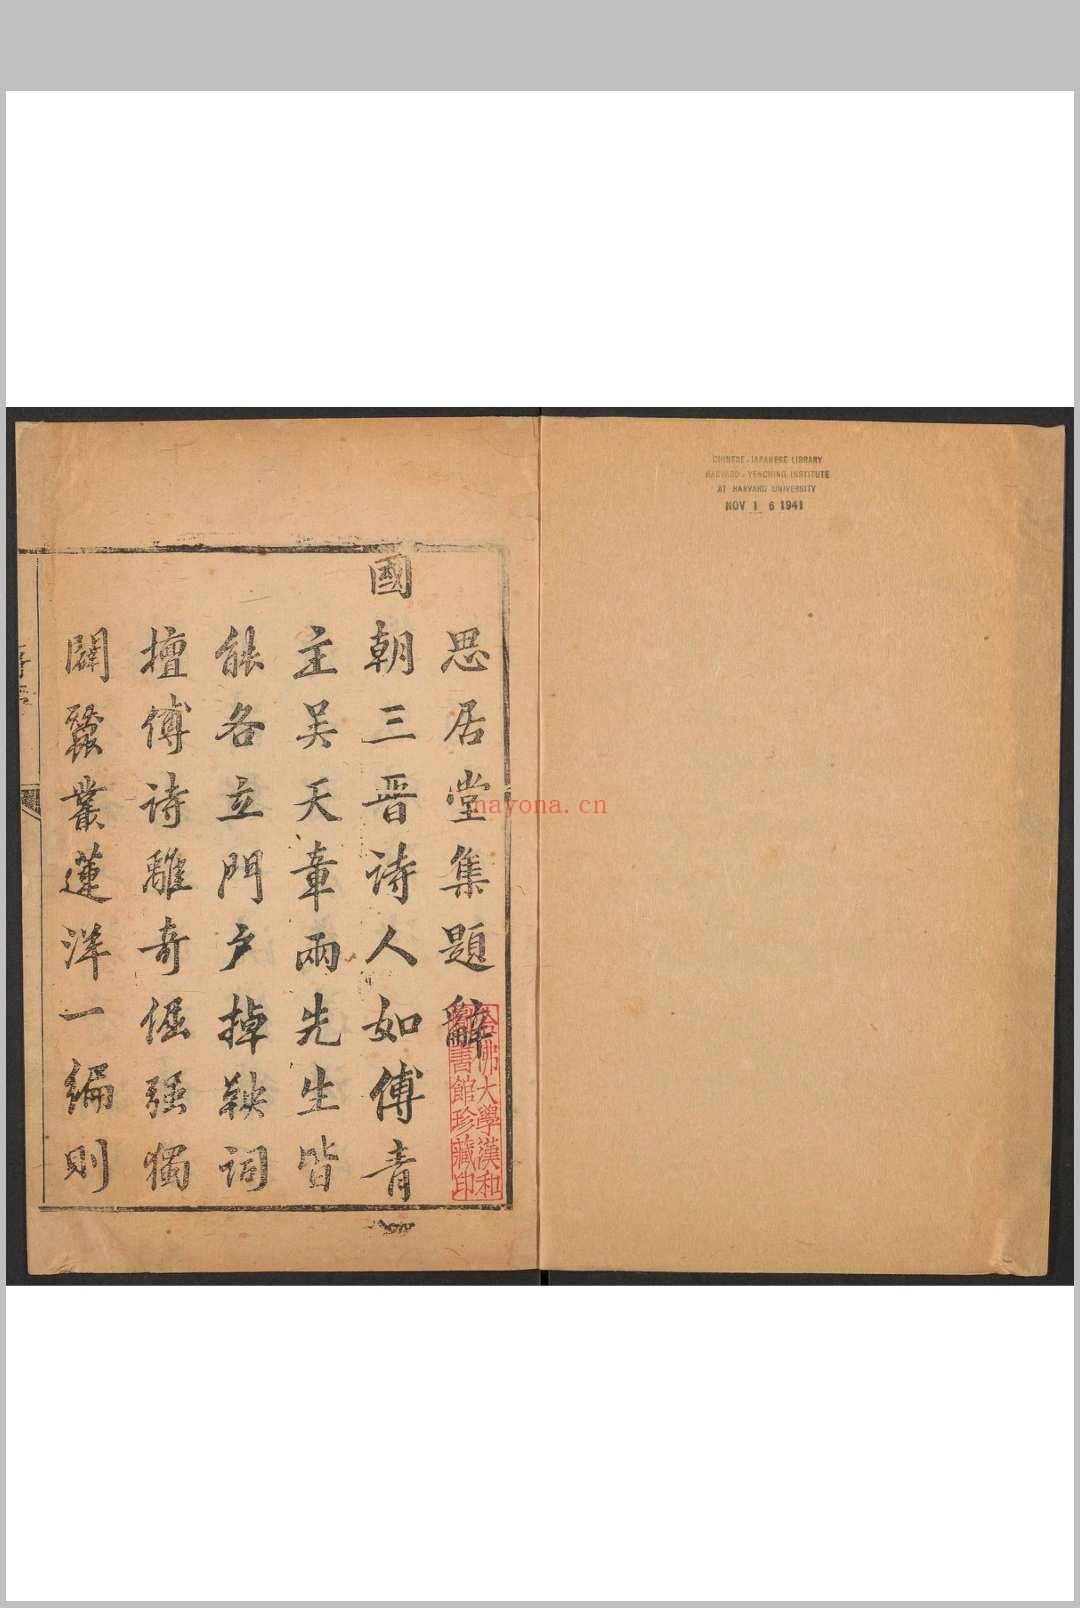 CHINESE-JAPANESE LIBRARY
HARVARD-YENCHING INSTITUTE
AT HARVARD UNIVERSITY
NOV 1 6 1941
思居堂集題辭
國朝三晉詩人如傅青
主吴天章兩先生皆
能各立門户掉鞅詞
壇傅詩離奇倔强獨
闢蠶叢蓮洋一編則
哈佛大學漢和
圖書館珍藏印
nayona.cn